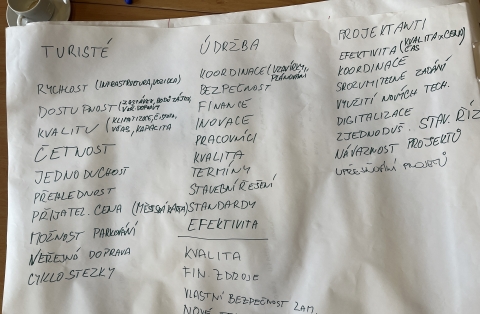 TURISTÉ
RYCHLOST (INFRASTRUKTURA, VOZIDLA)
DOSTUPNOST
KVALITU (KLIMATIZACE, ČISTOTA,
VČAS, KAPACITA
ČETNOST
JEDNODUCHOST
PŘEHLEDNOST
PŘIJATEL. CENA (MĚSTSKÁ KARTA)
MOŽNOST PARKOVÁNÍ
VEŘEJNÁ DOPRAVA
CYKLO STEZKY
ÚDRŽBA
KOORDINACE (UZAVÍRKY,
PLÁNOVÁNÍ
BEZPEČNOST
FINANCE
INOVACE
PRACOVNÍCI
KVALITA
TERMÍNY
STAVEBNÍ ŘEŠENÍ
STANDARDY
EFEKTIVITA
KVALITA
FIN ZDROJE
VLASTNÍ BEZPEČNOST ZAM.
NOVÉ
PROJEKTANTI
EFEKTIVITA (KVALITA x CENA)
ČAS
KOORDINACE
SROZUMITELNÉ ZADÁNÍ
VYUŽITÍ NOVÝCH TECH.
DIGITALIZACE
ZJEDNODUŠ. STAV. ŘÍZ
NÁVAZNOST PROJEKTŮ